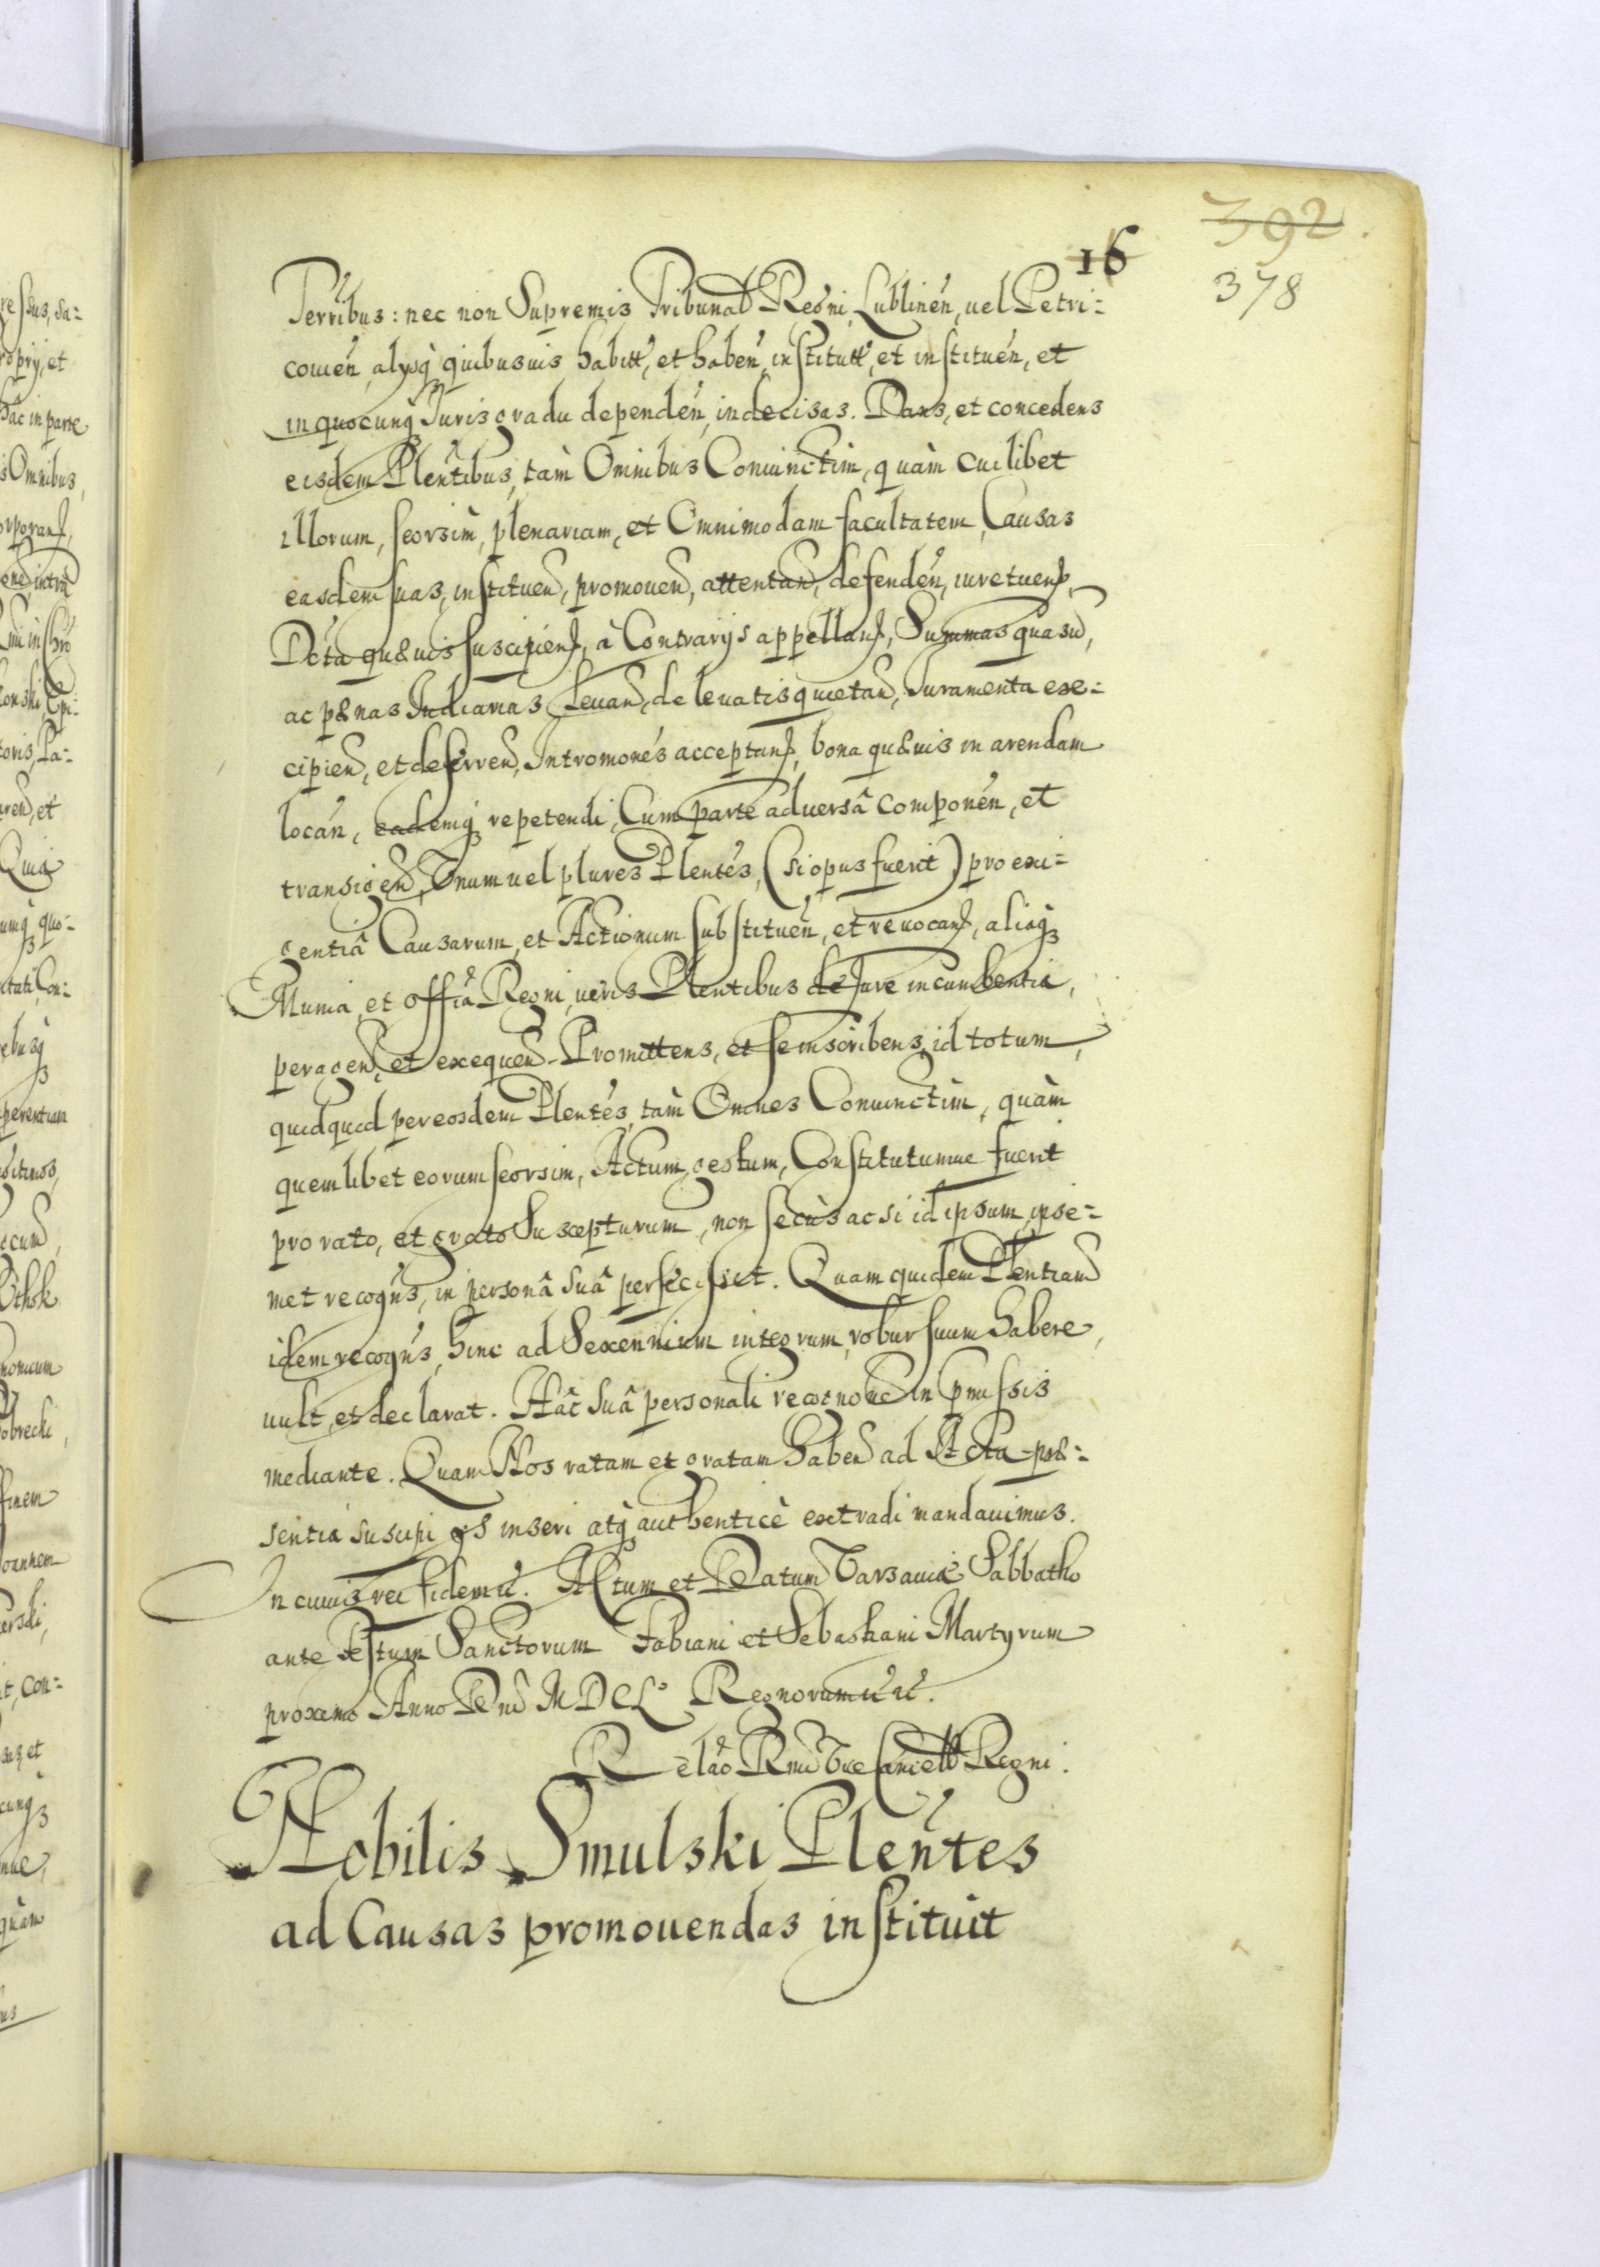 392
16
378
Terribus: nec non Supremis Tribunal Regni, Lublinen, uel Petri-
couien, alysq quibusuis habitt, et haben, institutt, et instituen, et
in quocunq Iuris gradu dependen, indecisas. Dans, et concedens
eisdem Plentibus, tàm Omnibus Coniunctim, quàm cuilibet
illorum, seorsim, plenariam, et Omnimodam facultatem, Causas
easdem suas, instituen, promouen, attentan, defenden, iuretuen,
Dcta quæuis suscipien, à Contrarijs appellan, Summas quasu,
ac pænas Iudiarias Leuan, de leuatis quietan, Iuramenta exe-
cipien, et deferren, Intromones acceptan, bona quæuis in arendam
locan, eademq repetendi, Cum parte aduersâ componen, et
transigen, Vnum uel plures Plentes, (si opus fuerit) pro exi-
gentiâ Causarum, et Actionum substituen, et reuocan, aliaq
Munia, et offia Regni, ueris Plentibus de Iure incumbentia,
peragen, et exequen. Promittens, et se inscribens, id totum,
quidquid per eosdem Plentes, tàm Omnes Coniunctim, quàm
quemlibet eorum seorsim, Actum, gestum, Constitutumue fuerit
pro rato, et grato Suscepturum, non secùs ac si id ipsum, ipse-
met recogns, in personâ Suâ perfecisset. Quam quidem Plentiam
idem recogns, hinc ad Sexennium integrum, robur suum habere,
uult, et declarat. Hâc Suâ personali recogno in pmissis
mediante. Quam Nos ratam et gratam haben ad Acta præ-
sentia suscipi inseri atq authenticè extradi mandauimus.
In cuius rei fidem. Actum et Datum Varsauiæ Sabbatho
ante Festum Sanctorum Fabiani et Sebastiani Martyrum
proximo Anno Dni MDCL° Regnorum.
Relao Rmi Vice Cancell Regni.
Nobilis Smulski Plentes
ad Causas promouendas instituit